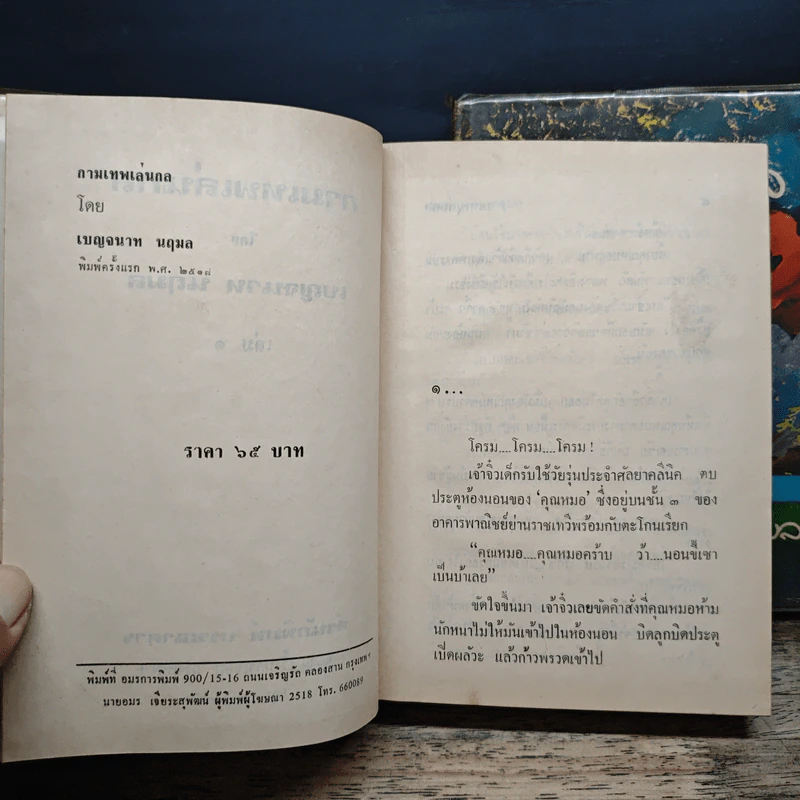 กามเทพเล่นกล
โดย
เบญจนาท นฤมล
พิมพ์ครั้งแรก พ.ศ. ๒๕๑๘
ราคา ๖๕ บาท
พิมพ์ที่ อมรการพิมพ์ 900/15-16 ถนนเจริญรัถ คลองสาน กรุงเทพฯ
นายอมร เจียระสุพัฒน์ ผู้พิมพ์ผู้โฆษณา 2518 โทร. 660089
๑...
โครม....โครม....โครม!
เจ้าจิ๋วเด็กรับใช้วัยรุ่นประจำศัลยาคลีนิค ตบ
ประตูห้องนอนของ ‘คุณหมอ’ ซึ่งอยู่บนชั้น ๓ ของ
อาคารพาณิชย์ย่านราชเทวีพร้อมกับตะโกนเรียก
“คุณหมอ....คุณหมอคร้าบ ว้า....นอนขี้เซา
เป็นบ้าเลย”
ขัดใจขึ้นมา เจ้าจิ๋วเลยขัดคำสั่งที่คุณหมอห้าม
นักหนาไม่ให้มันเข้าไปในห้องนอน บิดลูกบิดประตู
เปิดผลัวะ แล้วก้าวพรวดเข้าไป